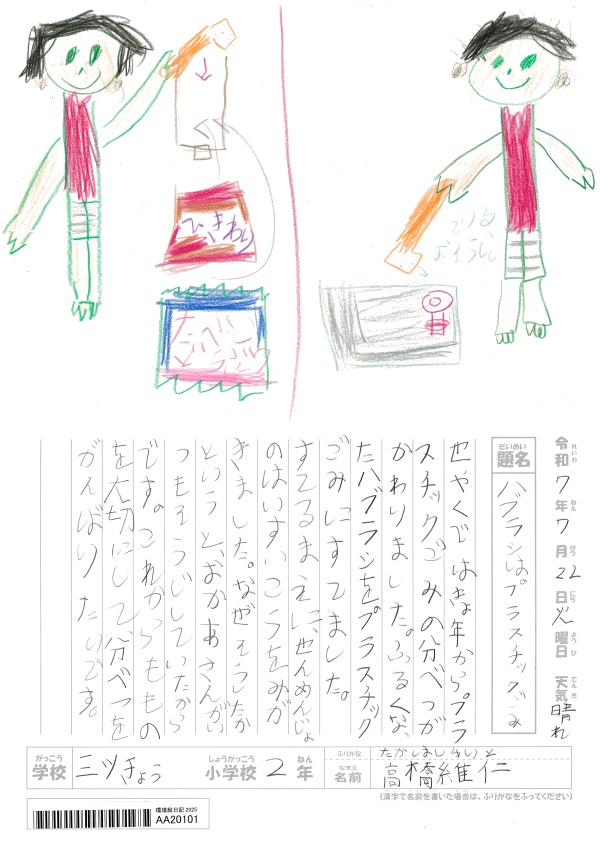 令和7年7月22日火曜日 天気 晴れ
れいわ ねん がつ にち ようび てんき
だいめい
題名
ハブラシはプラスチックごみ
せやくではきょ年からプラ
スチックごみの分べつが
かわりました。ふるくな
たハブラシをプラスチック
ごみにすてました。
すてるまえに、せんめんじょ
のはいすいこうをみが
きました。なぜそうしたか
というと、おかあさんがい
つもそうじしていたから
です。これからもものを
を大切にして分べつを
がんばりたいです。
がっこう
学校
三ツきょう
しょうがっこう
小学校
2
ねん
年
ふりがな
なまえ
名前
高橋維仁
(漢字で名前を書いた場合は、ふりがなをふってください)
環境絵日記 2025
AA20101